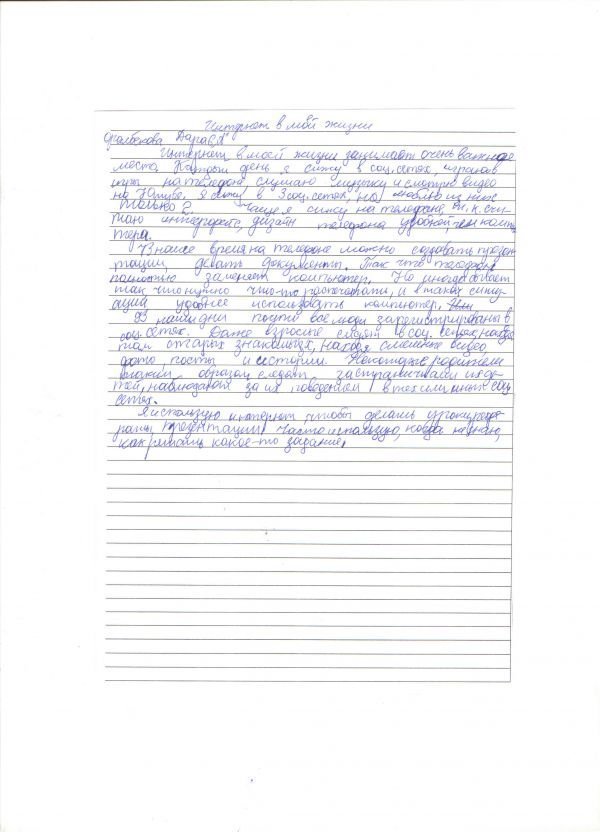 Интернет в мой жизни
Дарья
Интернет в моей жизни занимает очень важное
место. Каждый день я сижу в соц.сетях, играю в
игры на телефоне, слушаю музыку и смотрю видео
на Ютубе. Я сижу в 3 соц. сетях, но люблю из них
только 2. Чаще я сижу на телефоне, т.к. счи-
таю интерфейс, дизайн телефона удобней чем компью
тера.
В наше время на телефоне можно создовать презен
тации, делать документы. Так что телефон
полностью заменяет компьютер. Но иногда бывает
так что нужно что-то распечатать, и в таких ситу-
ациях удобнее использовать компьютер.
В наши дни почти все люди зарегистрированы в
соц. сетях. Даже взрослые сидят в соц. сетях, находя
там старых знакомых, находя смешные видео,
фото, посты и истории. Некоторые родители
таким образом следят за страничками их де-
тей, наблюдая за их поведением в тех или иных соц
сетях.
Я использую интернет чтобы делать уроки, рефе-
раты, презентации. Часто использую, когда не знаю,
как решать какое-то задание.